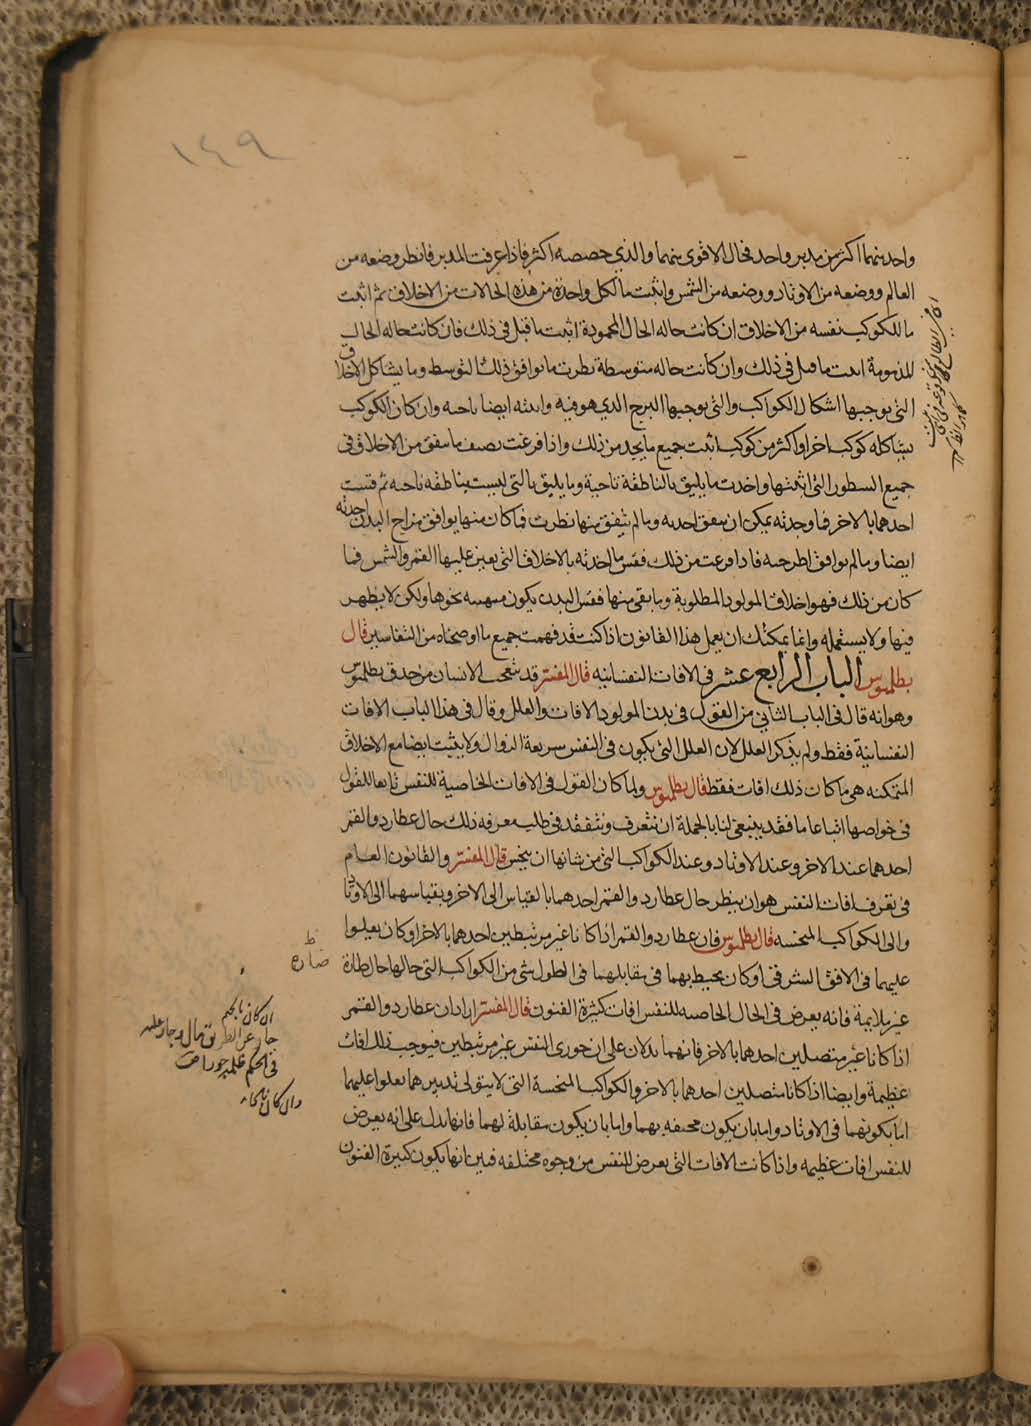 ١٤٩
واحد منهما اكثر من مدبر واحد فخال الاقوى منهما والذي حصصه اكثر فاذا عرفت المدبر فانظر وضعه من
العالم ووضعه من الاوتاد ووضعه من الشمس واثبت ما لكل واحدة من هذه الحالات من الاخلاق ثم اثبت
ما للكوكب نفسه من الاخلاق ان كانت حاله الحال المحمودة اثبت ما قيل في ذلك فان كانت حاله الحال
المذمومة اثبت ما قيل في ذلك وان كانت حاله متوسطة نظرت ما يوافق ذلك التوسط وما يشاكل الاخلاق
التي يوجبها اشكال الكواكب والتي يوجبها البرج الذي هو فيه واثبته ايضا ناحيه وان كان الكوكب
يشاكله كوكب اخر او اكثر من كوكب اثبت جميع ما يجد من ذلك واذا فرغت نصف ما سفق من الاخلاق في
جميع السطور التي اثبتها واخذت ما يليق بالناطقة ناحية وما يليق بالتي ليست بناطقه ناحيه ثم قست
احدهما بالاخر فما وجدته يمكن ان يتفق اخذته وما لم يتفق منها نظرت فما كان منها يوافق مزاج البدن اخذته
ايضا وما لم يوافق اطرحته فاذا فرغت من ذلك فقس ما اخذته بالاخلاق التي يعين عليها القمر والشمس فما
كان من ذلك فهو اخلاق المولود المطلوبة وما بقي منها فقس البدن يكون متهيئه نحوها ولكن لا يظهر
فيها ولا يستعمله وانما يمكنك ان يعمل هذا القانون اذا كنت قد فهمت جميع ما اوضحناه من التفاسير قال
بطلميوس الباب الرابع عشر في الافات النفسانيه قال المفسر قد يتعجب الانسان من حذق بطلميوس
وهو انه قال في الباب الثاني من القول في بدن المولود الافات والعلل وقال في هذا الباب الافات
النفسانية فقط ولم يذكر العلل لان العلل التي يكون في النفس سريعة الزوال ولا يثبت ايضا مع الاخلاق
المتمكنه هي ما كان ذلك افات فقط قال بطلميوس ولما كان القول في الافات الخاصية للنفس تابعا للقول
في خواصها اتباعا ما فقد ينبغي لنا بالجملة ان نتعرف ونتفقد في طلب معرفه ذلك حال عطارد والقمر
احدهما عند الاخر وعند الاوتاد وعند الكواكب التي من شانها ان ينحس قال المفسر والقانون العام
في تعرف افات النفس هو ان ينظر حال عطارد والقمر احدهما بالقياس الى الاخر وبقياسهما الى الاوتاد
والى الكواكب المنحسه قال بطلميوس فان عطارد والقمر اذا كانا غير مرتبطين احدهما بالاخر او كان يعلوا
عليهما في الافق الشرقي او كان يحيط بهما في مقابلهما في الطول شي من الكواكب التي حالها حال ظارة
غير ملايمة فانه يعرض في الحال الخاصيه للنفس افات كثيرة الفنون قال المفسر اراد ان عطارد والقمر
اذا كانا غير متصلين احدهما بالاخر فانهما يدلان على ان جوزي النفس غير مرتبطين فيوجب ذلك افات
عظيمة وايضا اذا كانا متصلين احدهما بالاخر والكواكب المنحسة التي لا يتولى تدبيرهما يعلوا عليهما
اما بكونهما في الاوتاد واما بان يكون محتفه بهما واما بان يكون مقابلة لهما فانها يدل على انه يعرض
للنفس افات عظيمه واذا كانت الافات التي يعرض للنفس من وجوه مختلفه فبين انها يكون كثيرة الفنون
ضارة